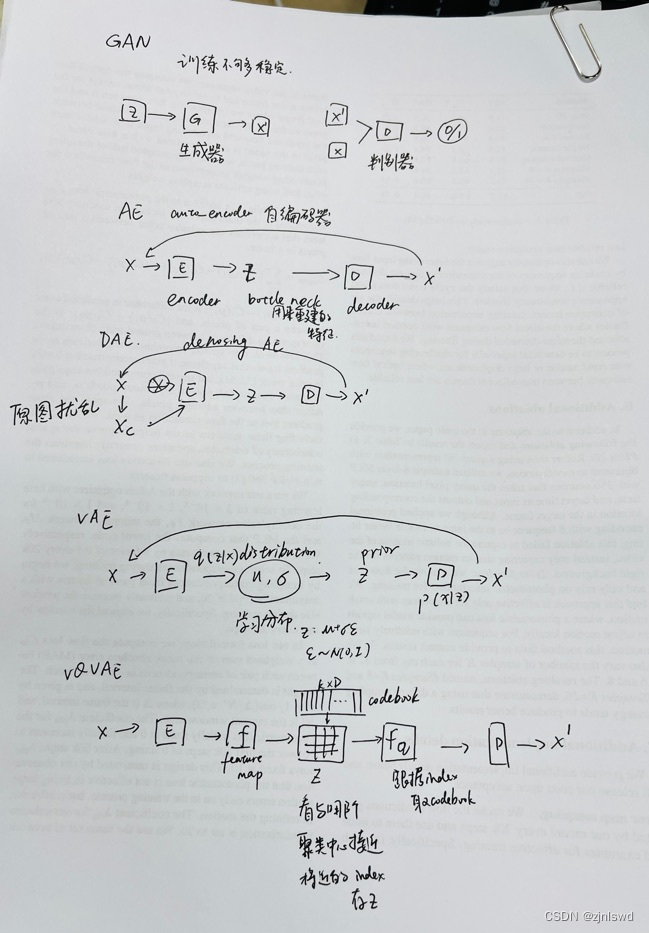 GAN
训练不够稳定.
Z → G → X'
生成器
X' X > D → 0/1
判别器
AE auto_encoder 自编码器
X → E → Z → D → X'
encoder bottle neck decoder
用来重建的
特征.
DAE. denosing AE
X E → Z → D → X'
原图扰乱
Xc
VAE
q(z|x) distribution. prior
X → E → u, σ → Z → D → X'
P(x|z)
学习分布. z: u+σε
ε~N(0,I)
VQVAE
k×D
codebook
X → E → f → → fq → D → X'
feature
map
Z
根据index
取codebook
看与哪个
聚类中心接近
将近的 index
存Z
CSDN @zjnlswd